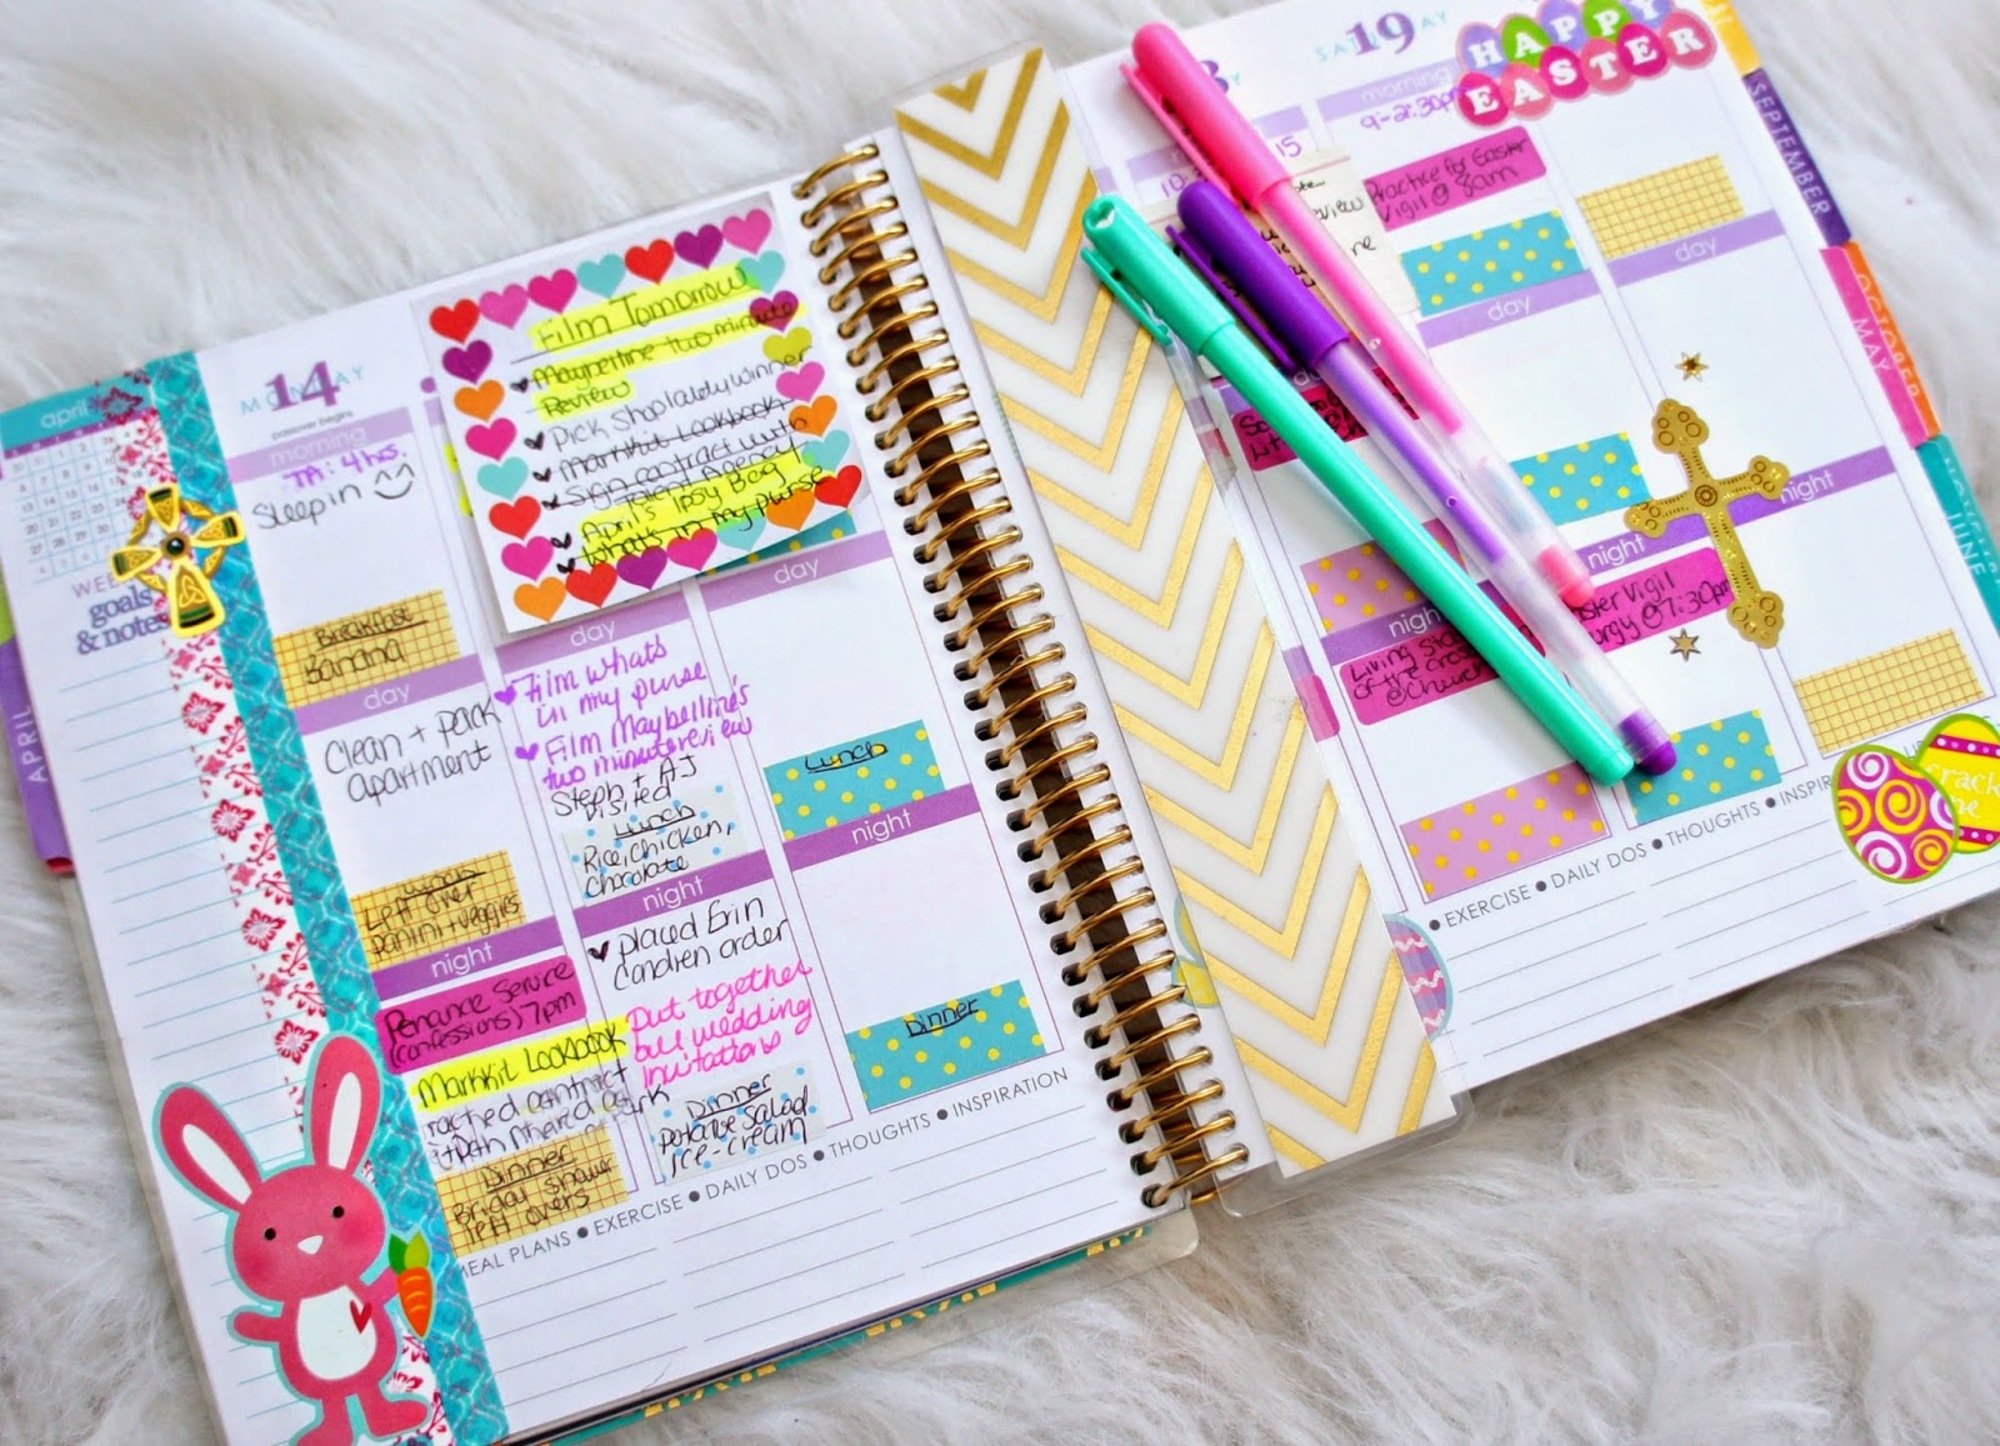 april
WEE
goals
& notes
APRIL
14
MONDAY
passover begins
morning
TA: 4 hrs.
Sleep in
Breakfast
Banana
day
Clean + pack
apartment
Lunch
Left over
panini + veggies
night
Penance Service
(confessions) 7pm
Markkit Lookbook
Dinner
Bridal shower
left overs
Film Tomorrow
Maybelline two minute
Review
pick Shoplately Winner
Markkit Lookbook
Sign contract with
Talent Agency
April's Ipsy Bag
What's in my purse
day
Film whats
in my purse
Film Maybelline's
two minute review
Steph + AJ
visited
Lunch
Rice, chicken,
chocolate
night
placed Erin
Condren order
Put together
our wedding
invitations
Dinner
potatoe salad
ice-cream
day
Lunch
night
Dinner
MEAL PLANS • EXERCISE • DAILY DOS • THOUGHTS • INSPIRATION
15
night
Living Sta
of the cross
@church
19
SATURDAY
HAPPY
EASTER
morning
9-2:30pm
Practice for Easter
Vigil @ 9am
day
night
ster Vigil
urgy @ 7:30pm
day
night
• EXERCISE • DAILY DOS • THOUGHTS • INSPIR
crack
me
SEPTEMBER
OCTOBER
MAY
JUNE